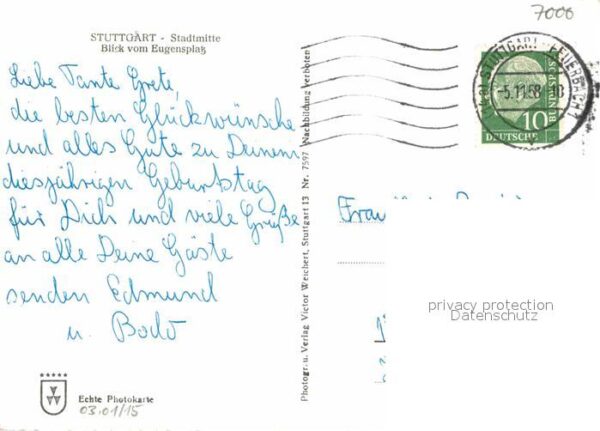 7000
STUTTGART - Stadtmitte
Blick vom Eugensplatz
Liebe Tante Grete,
die besten Glückwünsche
und alles Gute zu Deinem
diesjährigen Geburtstag
für Dich und viele Grüße
an alle Deine Gäste
senden Edmund
u. Bodo
Echte Photokarte
03.01/15
Photogr. u. Verlag Victor Weichert, Stuttgart 13 Nr. 7597 Nachbildung verboten
STUTTGART - FEUERBACH
-5.11.58-18
10
DEUTSCHE
BUNDESPOST
Frau
privacy protection
Datenschutz